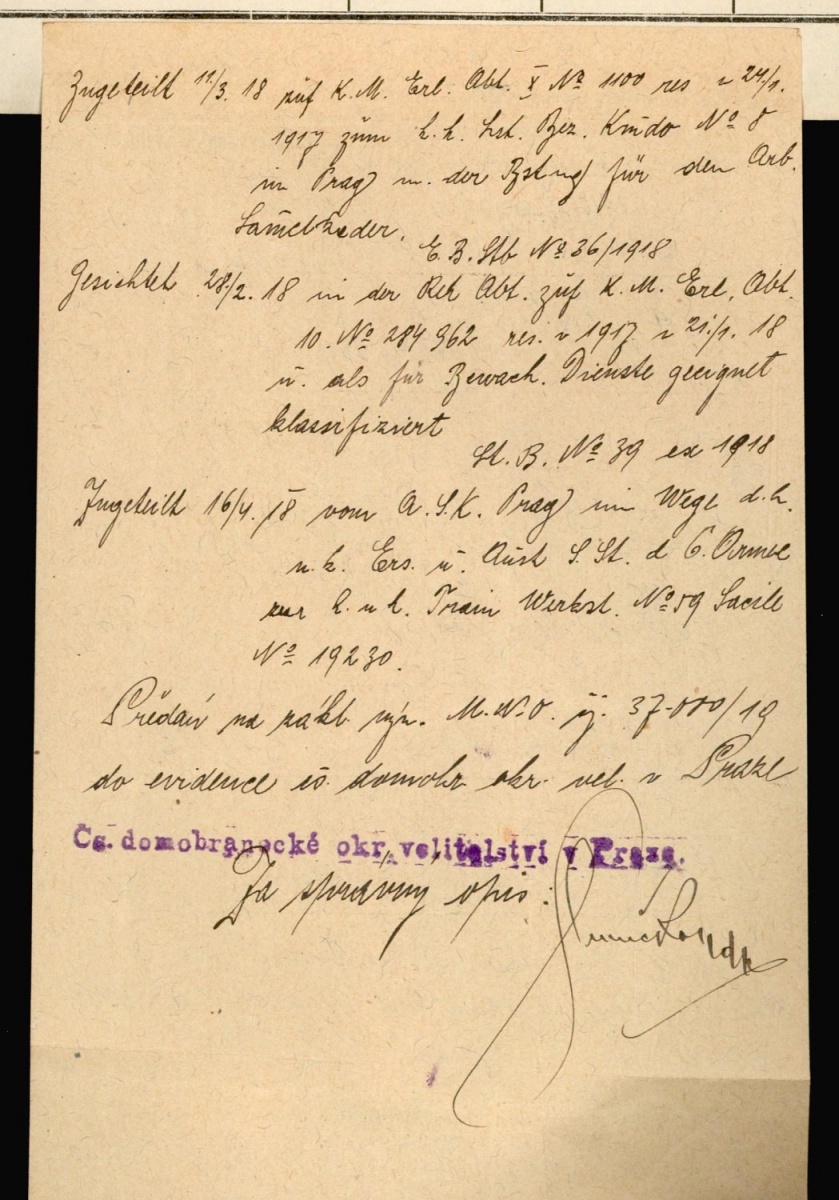 Zugeteilt 11/3. 18 zuf K. M. Erl. Abt. X No 1100 res v 24/1.
1917 zum k. k. Lst. Bez. Kmdo No 8
in Prag m. der Bstmg für den Arb.
E. B. Stb No 36/1918
Gesichtet 28/2. 18 in der Rek Abt. zuf K. M. Erl. Abt.
10. No 284 962 res. v 1917 v 21/1. 18
u. als für Bewach. Dienste geeignet
klassifiziert
St. B. No 39 ex 1918
Zugeteilt 16/4. 18 vom A. S. K. Prag im Wege d. k.
u. k. Ers. u. Aust S. St. d 6. Armee
zur k. u k. Train Werkst. No 59 Sacile
No 19230.
Předán na zákl. výn. M. N. O. čj. 37-000/19
do evidence čs. domobr. okr. vel. v Praze
Čs. domobranecké okr. velitelství v Praze.
Za správný opis: